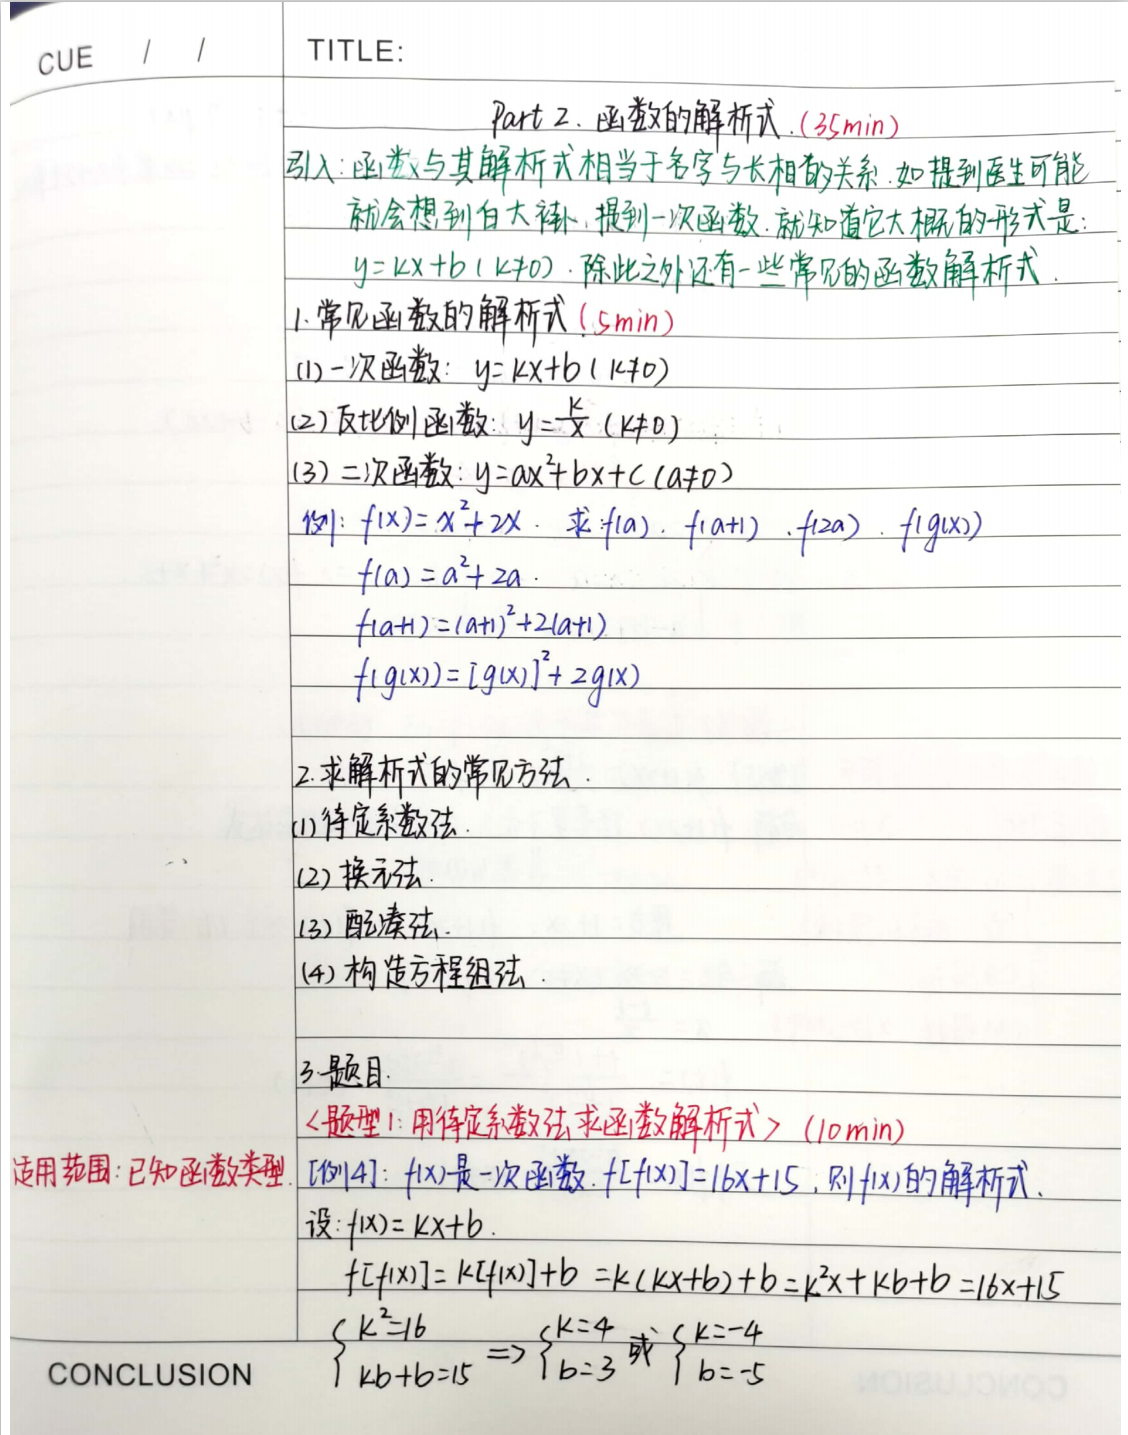 CUE / /
TITLE:
Part 2. 函数的解析式.(35min)
引入:函数与其解析式相当于名字与长相的关系.如提到医生可能
就会想到白大褂.提到一次函数.就知道它大概的形式是:
y=kx+b(k≠0).除此之外还有一些常见的函数解析式.
1.常见函数的解析式(5min)
(1)一次函数: y=kx+b(k≠0)
(2)反比例函数: y=k/x(k≠0)
(3)二次函数:y=ax²+bx+c(a≠0)
例: f(x)=x²+2x. 求:f(a). f(a+1) .f(2a). f(g(x))
f(a)=a²+2a.
f(a+1)=(a+1)²+2(a+1)
f(g(x))=[g(x)]²+2g(x)
2.求解析式的常见方法.
(1)待定系数法.
(2)换元法.
(3)配凑法.
(4)构造方程组法.
3.题目.
<题型1:用待定系数法求函数解析式> (10min)
适用范围:已知函数类型.
[例4]: f(x)是一次函数.f[f(x)]=16x+15.则f(x)的解析式.
设:f(x)=kx+b.
f[f(x)]=k[f(x)]+b =k(kx+b)+b=k²x+kb+b=16x+15
{k²=16 kb+b=15 => {k=4 b=3 或 {k=-4 b=-5
CONCLUSION